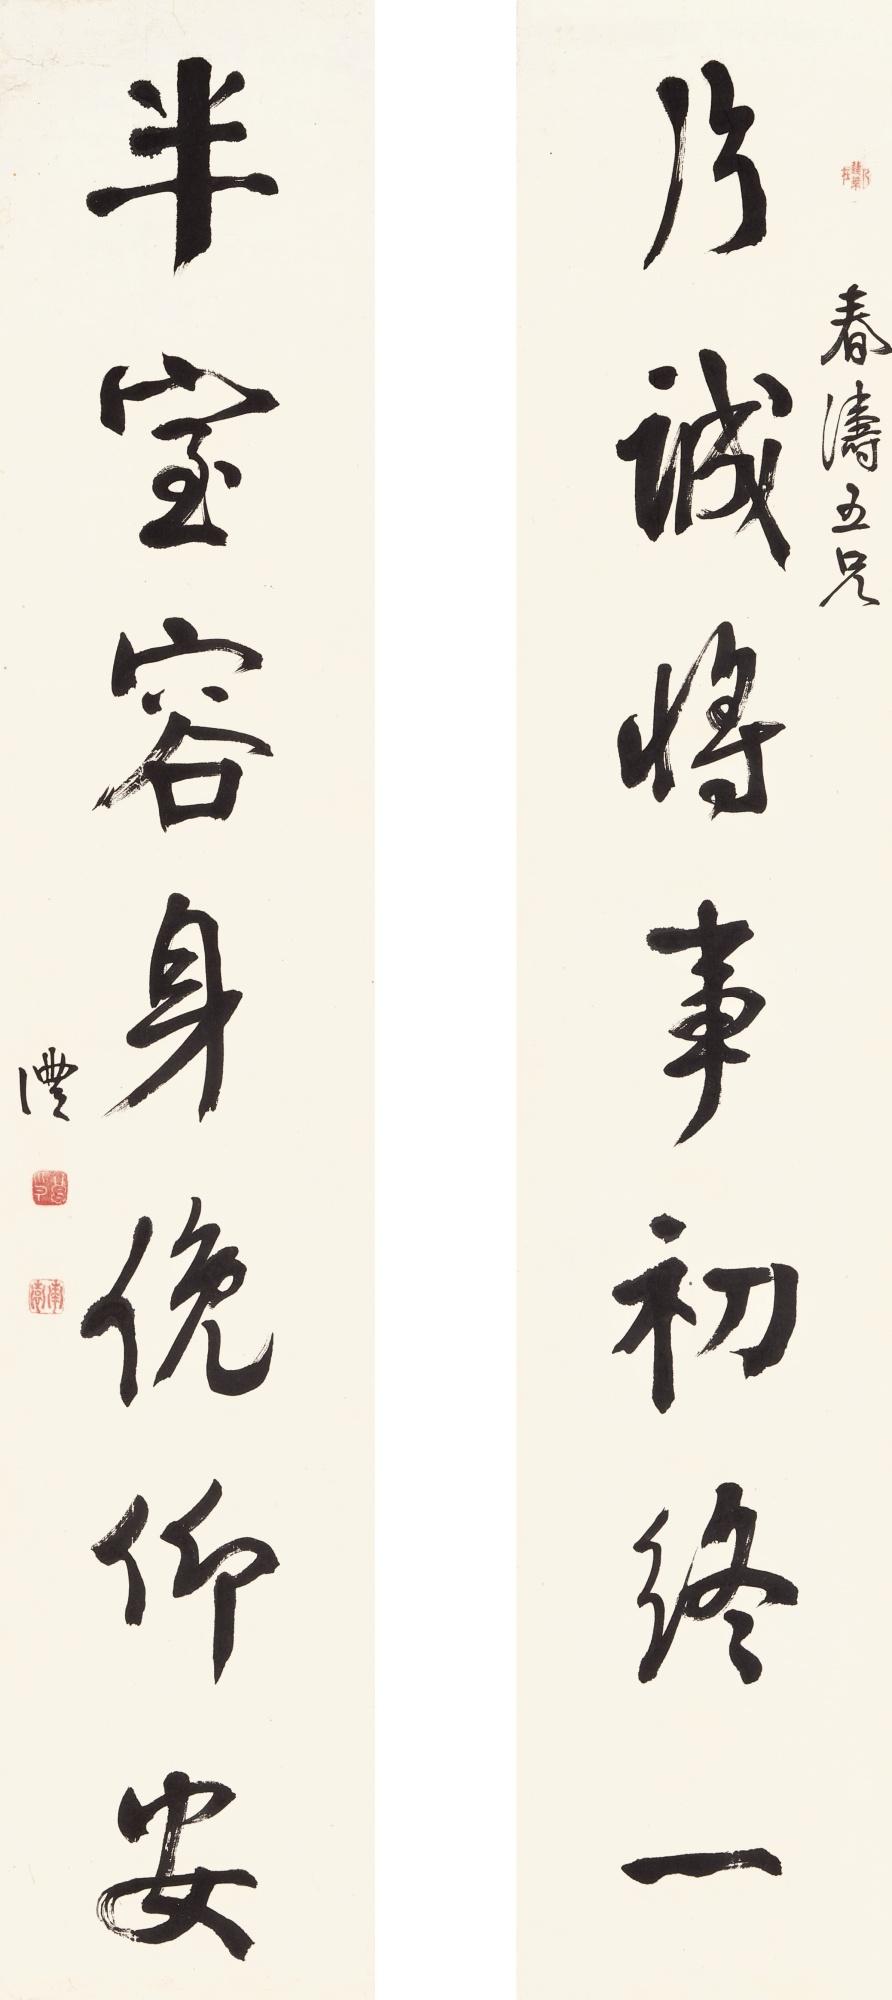 春濤五兄
片誠將事初終一
半室容身俛仰安
澧